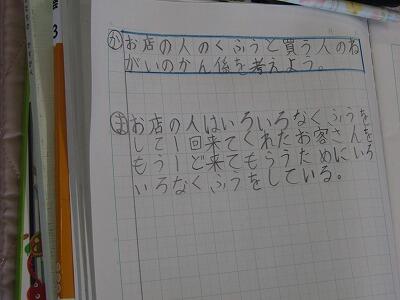 か お店の人のくふうと買う人のね
がいのかん係を考えよう。
ま お店の人はいろいろなくふうを
して1回来てくれたお客さんを
もう1ど来てもらうためにいろ
いろなくふうをしている。
3